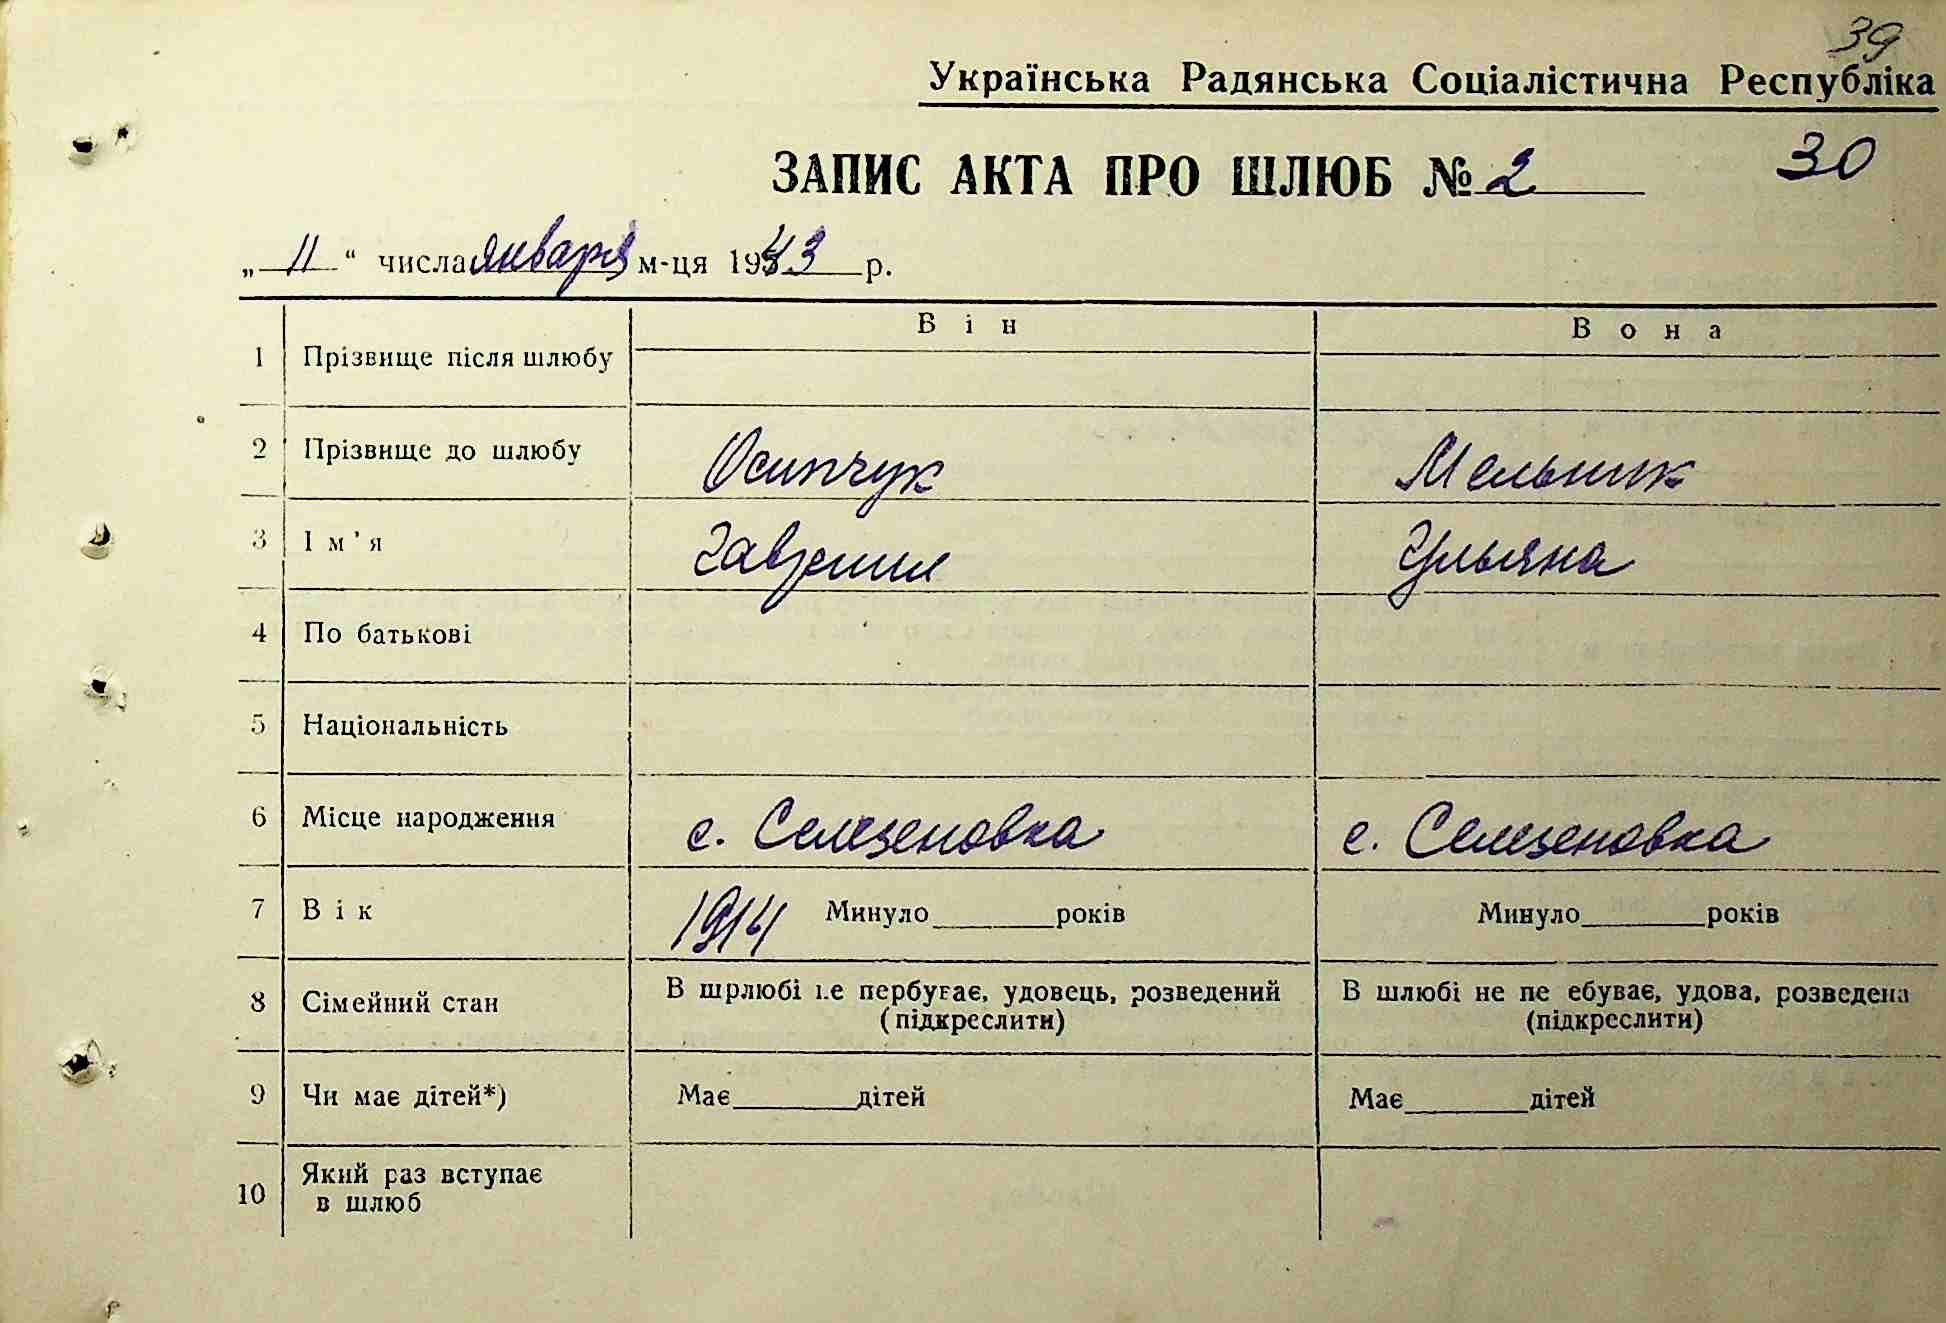 39
Українська Радянська Соціалістична Республіка
ЗАПИС АКТА ПРО ШЛЮБ № 2
30
„ 11 “ числа января м-ця 1943 р.
Він Вона
1 Прізвище після шлюбу
2 Прізвище до шлюбу Осипчук Мельник
3 Ім'я Гавриил Ульяна
4 По батькові
5 Національність
6 Місце народження с. Селезеновка с. Селезеновка
7 Вік 1914 Минуло років Минуло років
8 Сімейний стан В шрлюбі не пербуває, удовець, розведений В шлюбі не пе ебуває, удова, розведена
(підкреслити) (підкреслити)
9 Чи має дітей*) Має дітей Має дітей
10 Який раз вступає
в шлюб